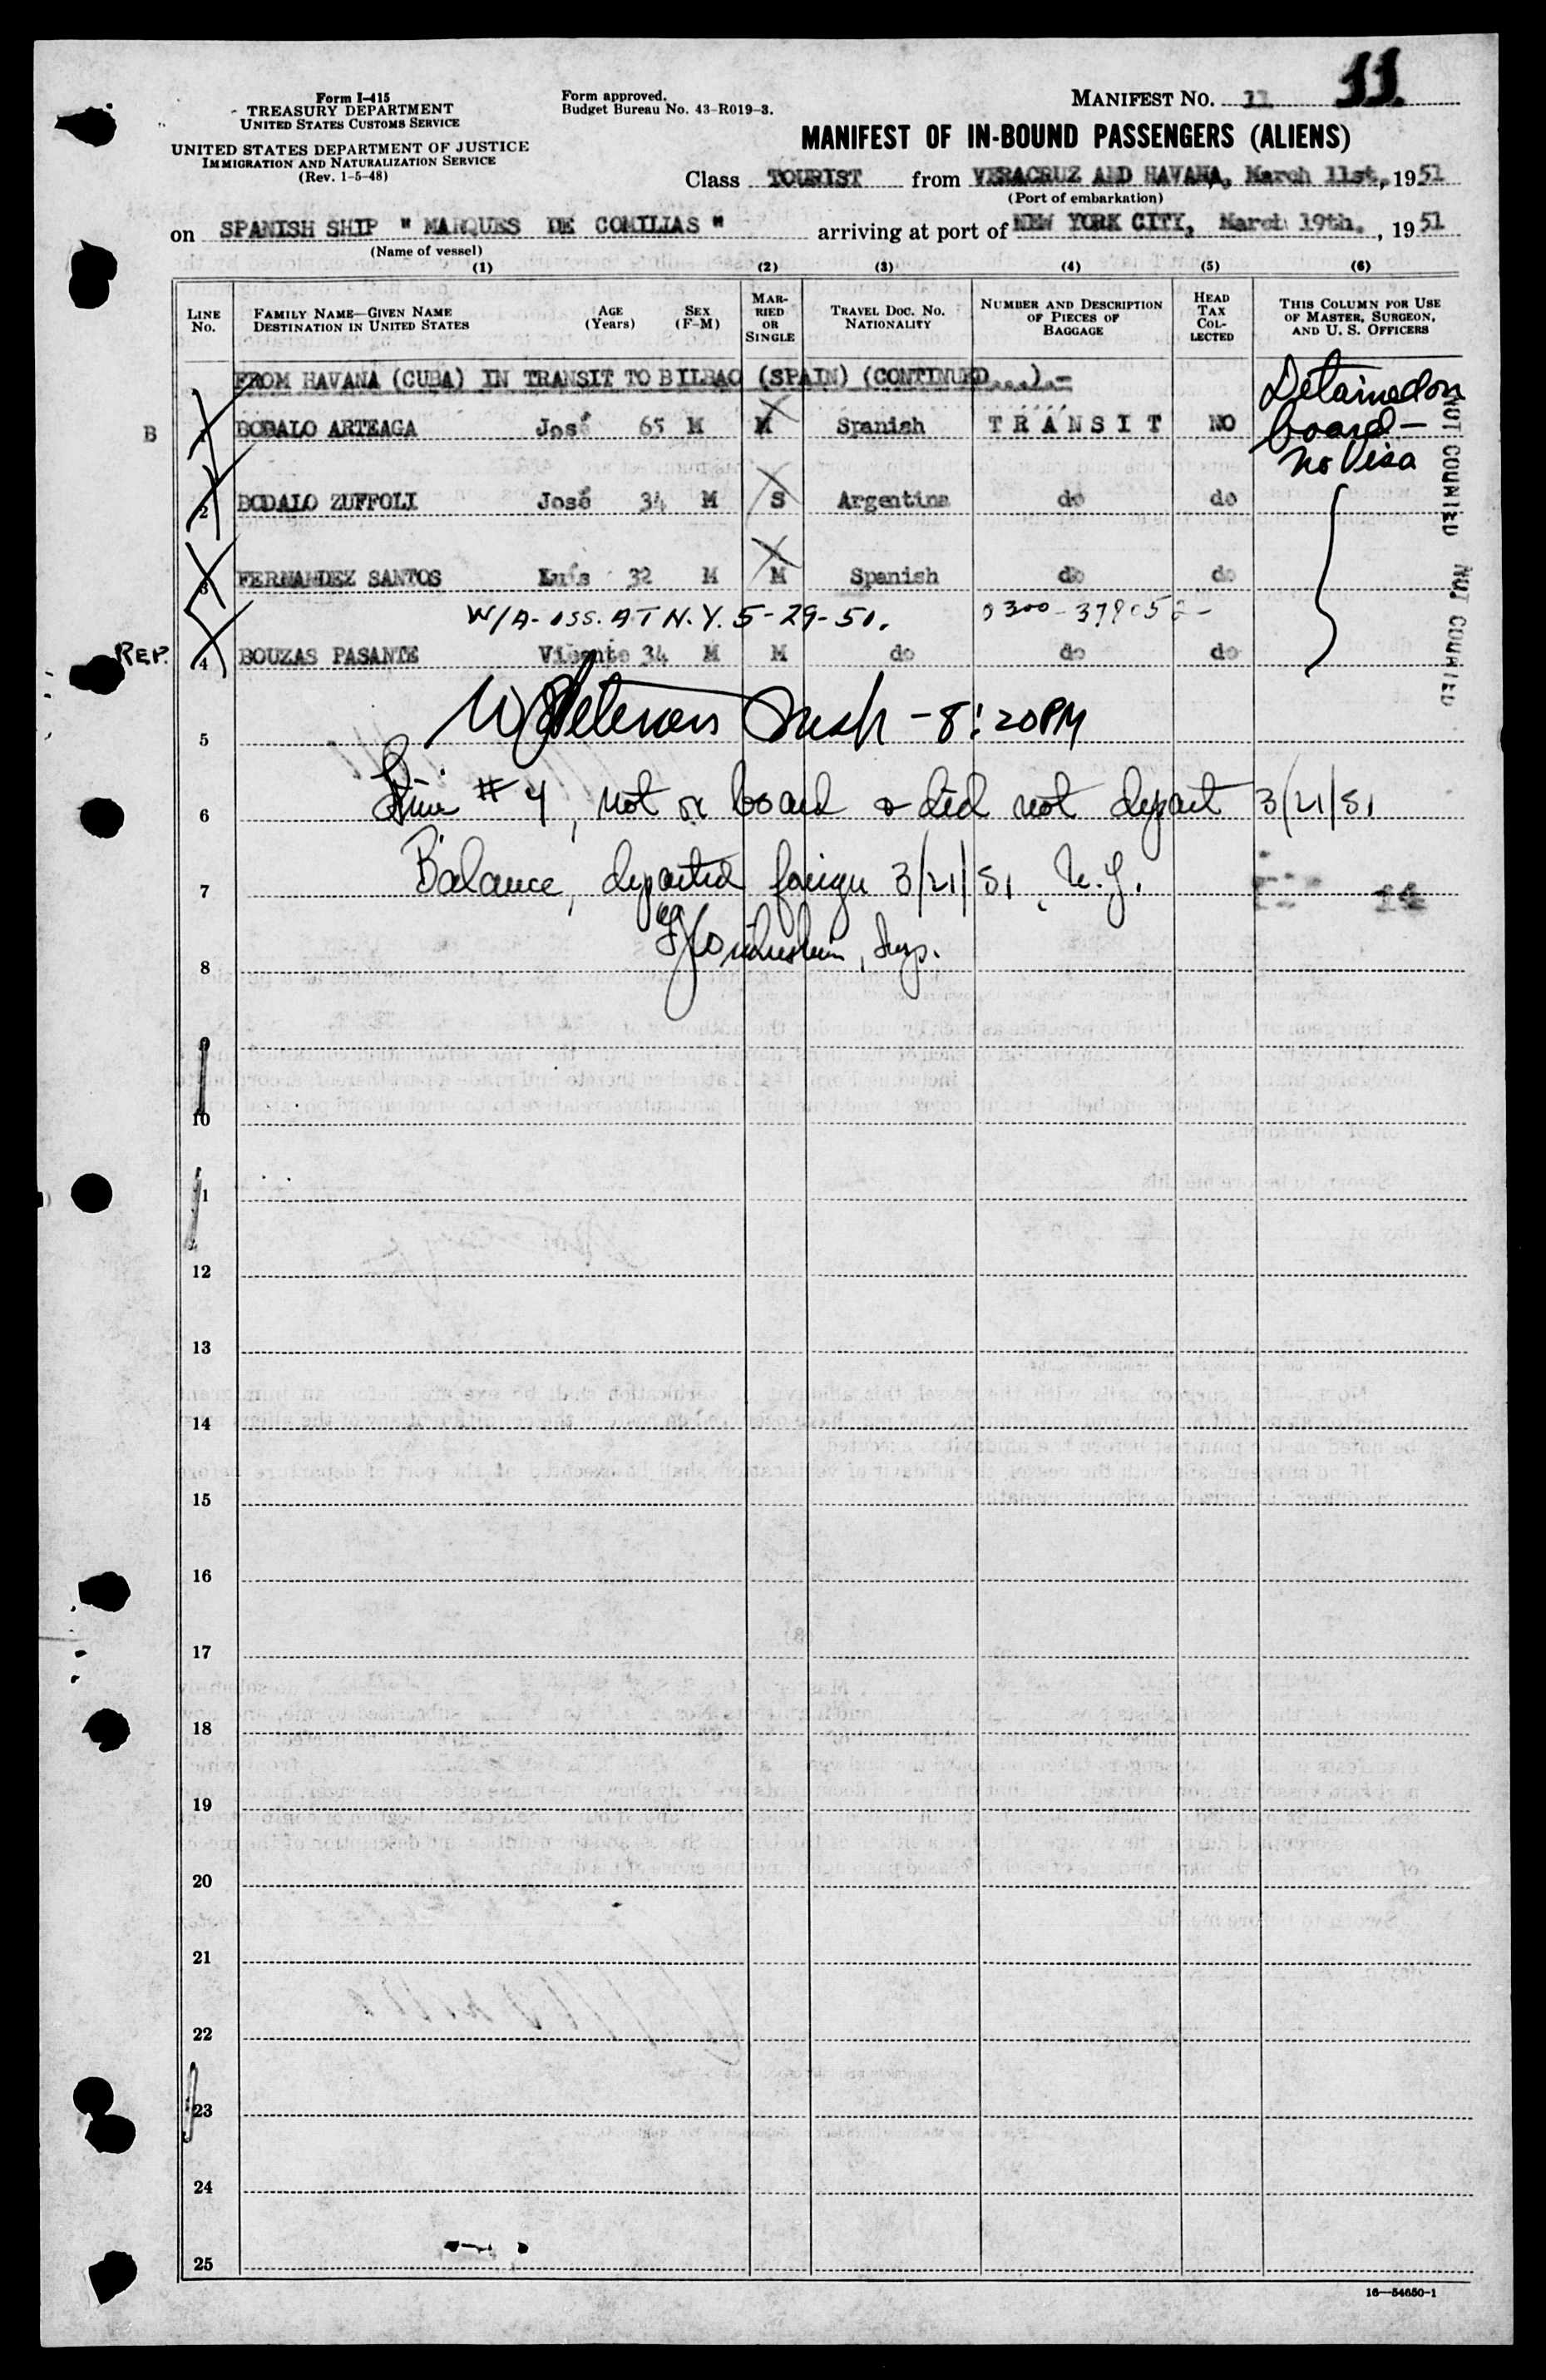 11
Form I-415
TREASURY DEPARTMENT
UNITED STATES CUSTOMS SERVICE
UNITED STATES DEPARTMENT OF JUSTICE
IMMIGRATION AND NATURALIZATION SERVICE
(Rev. 1-5-48)
Form approved.
Budget Bureau No. 43-R019-3.
MANIFEST NO. 11
MANIFEST OF IN-BOUND PASSENGERS (ALIENS)
Class TOURIST from VERACRUZ AND HAVANA, March 11st, 1951
(Port of embarkation)
on SPANISH SHIP " MARQUES DE COMILIAS " arriving at port of NEW YORK CITY, March 19th. , 1951
(Name of vessel)
(1) (2) (3) (4) (5) (6)
LINE No. FAMILY NAME—GIVEN NAME DESTINATION IN UNITED STATES AGE (Years) SEX (F-M) MARRIED OR SINGLE TRAVEL DOC. NO. NATIONALITY NUMBER AND DESCRIPTION OF PIECES OF BAGGAGE HEAD TAX COLLECTED THIS COLUMN FOR USE OF MASTER, SURGEON, AND U. S. OFFICERS
FROM HAVANA (CUBA) IN TRANSIT TO BILBAO (SPAIN) (CONTINUED...).-
Detained on board - no Visa
B 1 BODALO ARTEAGA José 65 M M Spanish T R A N S I T NO
NOT COUNTED
2 BODALO ZUFFOLI José 34 M S Argentina do do
3 FERNANDEZ SANTOS Luís 32 M M Spanish do do
NOT COUNTED
W/A- ISS. AT N.Y. 5-29-51. 0300-
REP. 4 BOUZAS PASANTE Vicente 34 M M do do do
5 - 8:20PM
6 Line # 4, not on board & did not depart 3/21/51
7 Balance, departed foreign 3/21/51 N.Y.
8 Insp.
9
10
11
12
13
14
15
16
17
18
19
20
21
22
23
24
25
16—54650-1